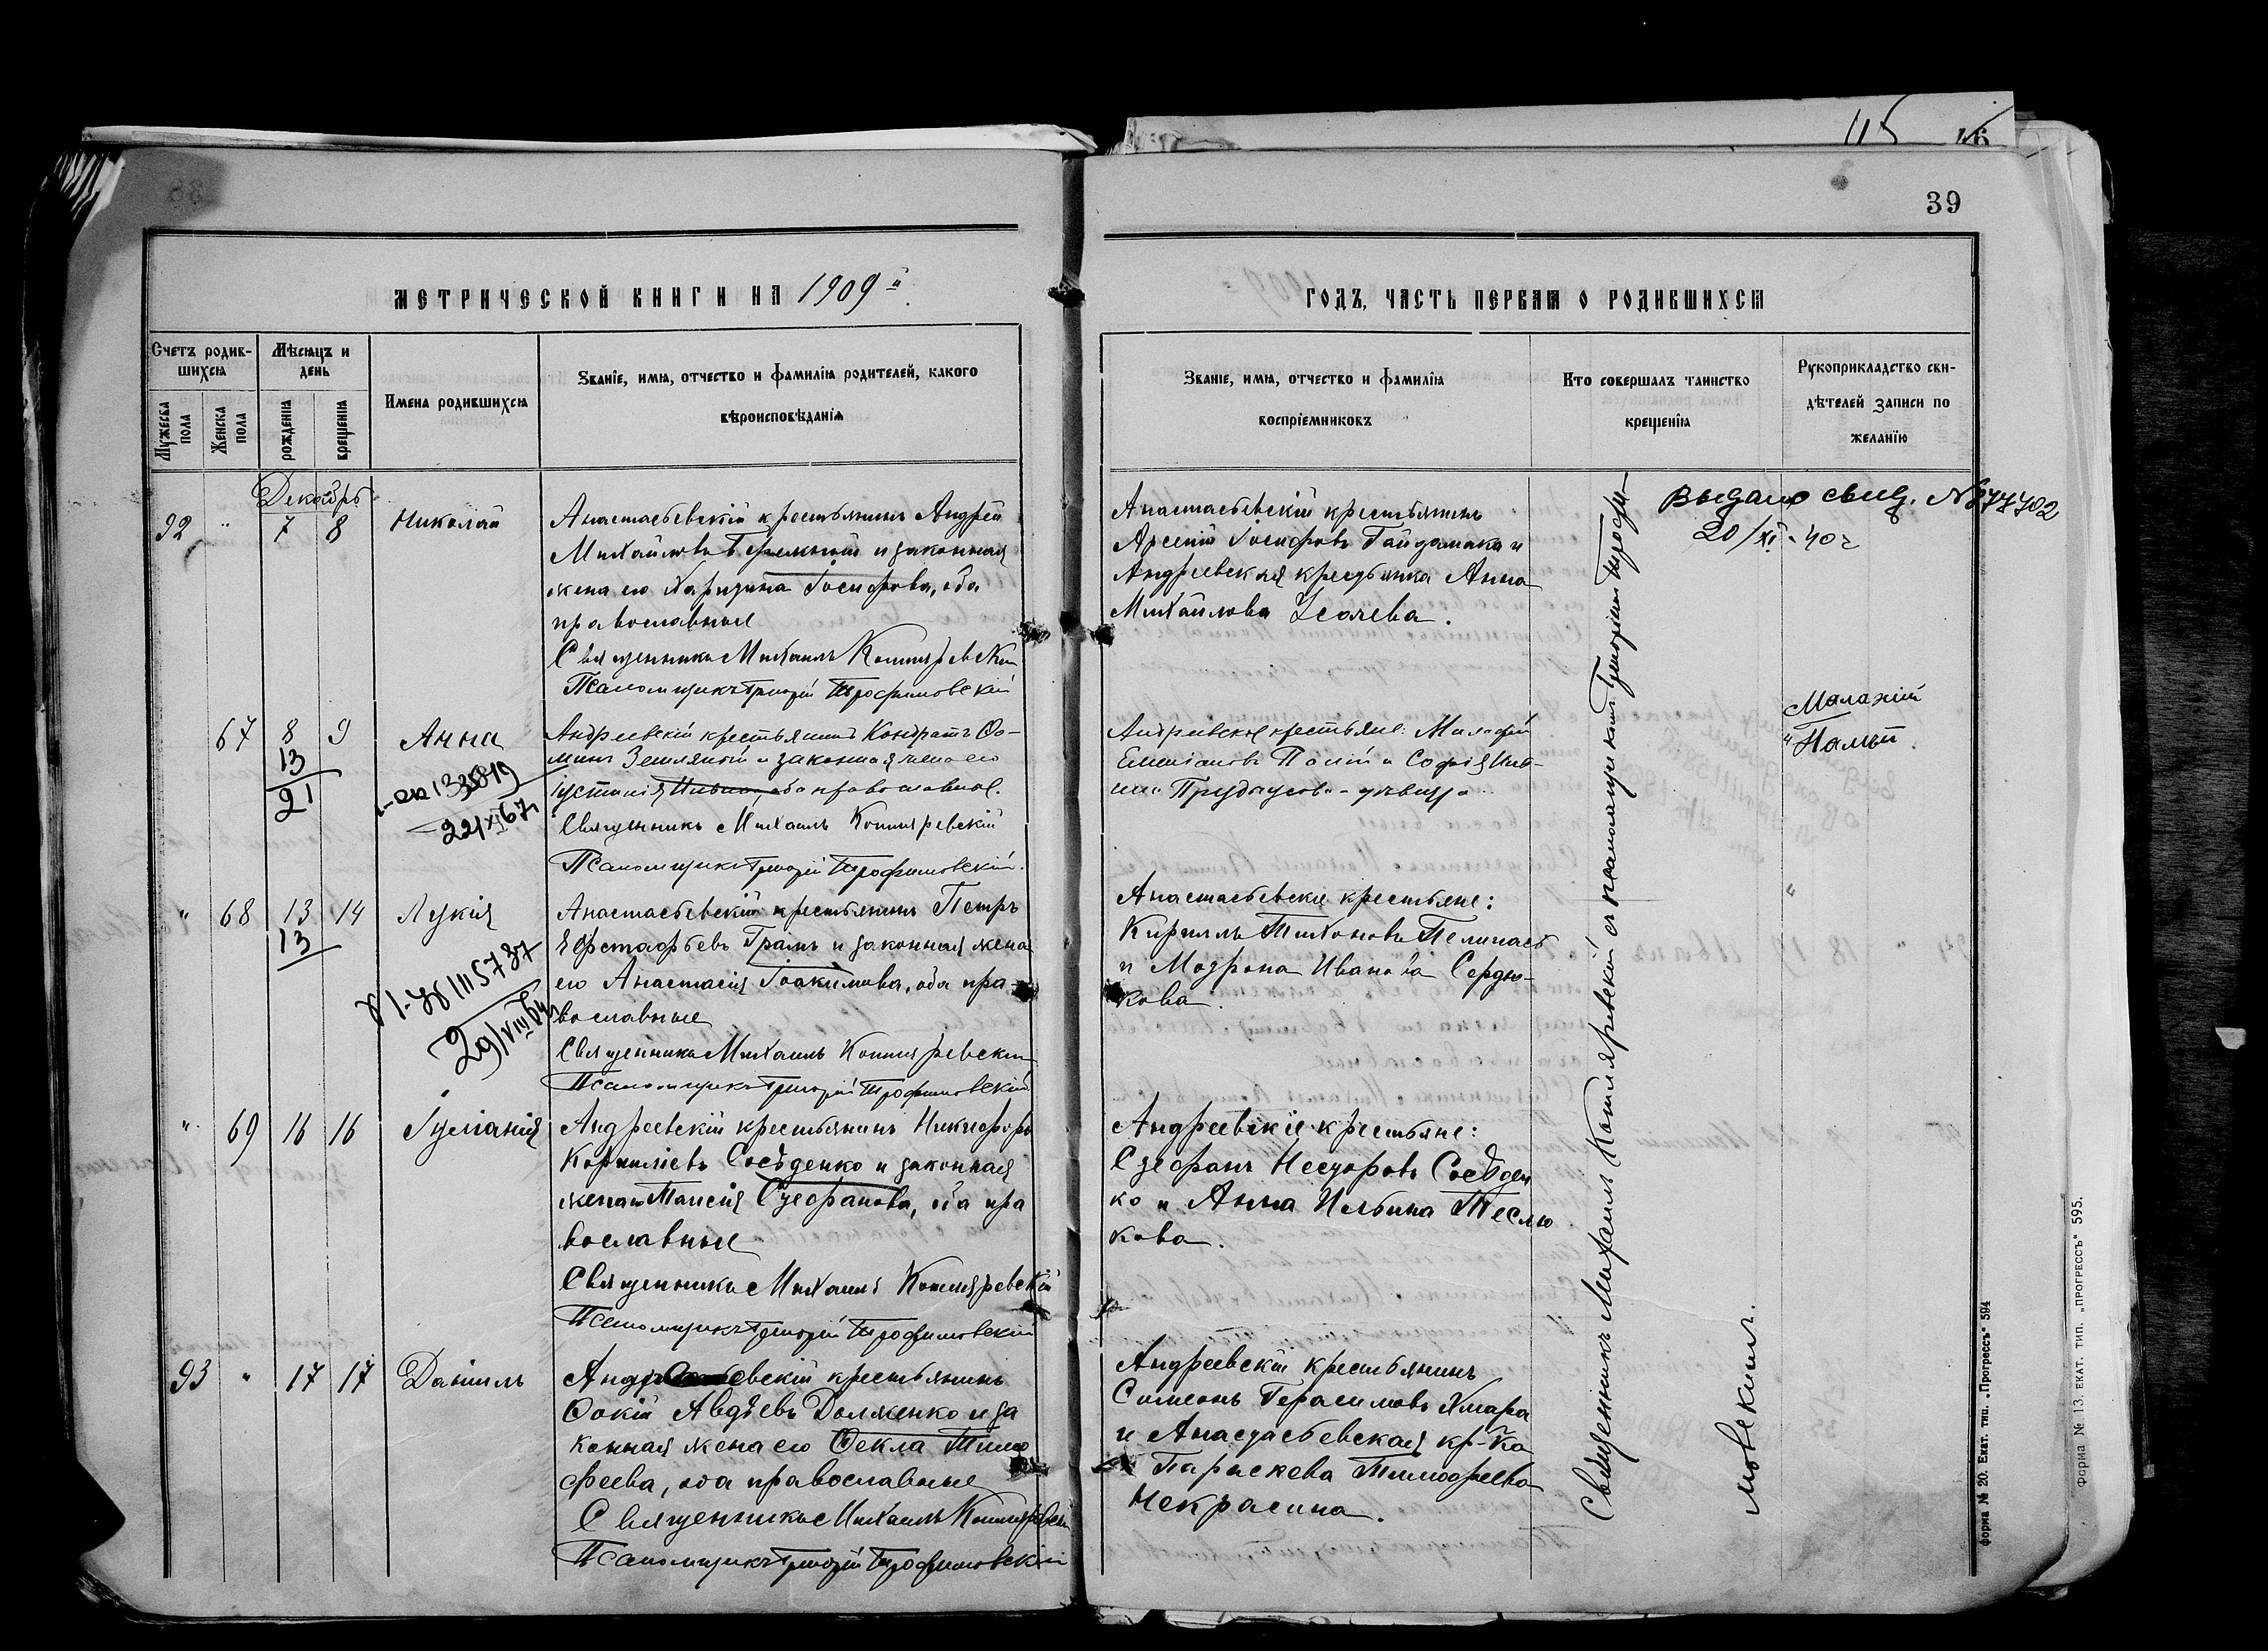 115 46
39
МЕТРИЧЕСКОЙ КНИГИ НА 1909 й
ГОДЪ, ЧАСТЬ ПЕРВАЯ О РОДИВШИХСЯ
Счетъ родив-
шихся
Мужеска пола
Женска пола
Мѣсяцъ и
день
рожденія
крещенія
Имена родившихся
Званіе, имя, отчество и фамилія родителей, какого
вѣроисповѣданія
Званіе, имя, отчество и фамилія
воспріемниковъ
Кто совершалъ таинство
крещенія
Рукоприкладство сви-
дѣтелей записи по
желанію
Декабрь
92 " 7 8 Николай
Анастасьевскій крестьянинъ Андрей
Михайловъ и законная
жена его Харитина Іосифова, оба
православные
Священникъ Михаилъ Котляревскій
Псаломщикъ Григорій Трофимовскій
Анастасьевскій крестьянинъ
Арсеній Іосифовъ Гайдамака и
Андреевская крестьянка Анна
Михайлова Усачева.
Выдано свид. № 877702
20/XI-40 г
67 8 9 Анна
13
21
22/XI 67
Андреевскій крестьянинъ Кондратъ Ѳо-
минъ Земляной и законная жена его
Іустинія Ильина, оба православные.
Священникъ Михаилъ Котляревскій
Псаломщикъ Григорій Трофимовскій.
Андреевскіе крестьяне:
и Софія Иль-
Малахій
" 68 13 14 Лукія
13
115737
29/VIII 64
Анастасьевскій крестьянинъ Петръ
Евстафьевъ Грамъ и законная жена
его Анастасія Іоакимова, оба пра-
вославные
Священникъ Михаилъ Котляревскій
Псаломщикъ Григорій Трофимовскій
Анастасьевскіе крестьяне:
Кириллъ Тихоновъ Пелипась
и Мотрона Иванова Сердю-
кова.
" 69 16 16 Іуліанія
Андреевскій крестьянинъ Никифоръ
Корниліевъ Сосѣденко и законная
жена его Таисія Стефанова, оба пра
вославные
Священникъ Михаилъ Котляревскій
Псаломщикъ Григорій Трофимовскій
Андреевскіе крестьяне:
Стефанъ Несторовъ Сосѣден
ко и Анна Ильина Теслю
кова.
93 " 17 17 Даніилъ
Андреевскій крестьянинъ
Ѳокій Авдѣевъ Долженко и за
конная жена его Ѳекла Тимо
феева, оба православные
Священникъ Михаилъ Котляревскій
Псаломщикъ Григорій Трофимовскій
Андреевскій крестьянинъ
Симеонъ Герасимовъ Хмара
и Анастасьевская кр-ка
Параскева Тимофеева
Некрасина.
Священникъ Михаилъ Котляревскій съ псаломщикомъ Григоріемъ Трофи-
мовскимъ.
Форма № 20. Екат. тип. „Прогрессъ" 594
Форма № 13. ЕКАТ. ТИП. „ПРОГРЕССЪ" 595.